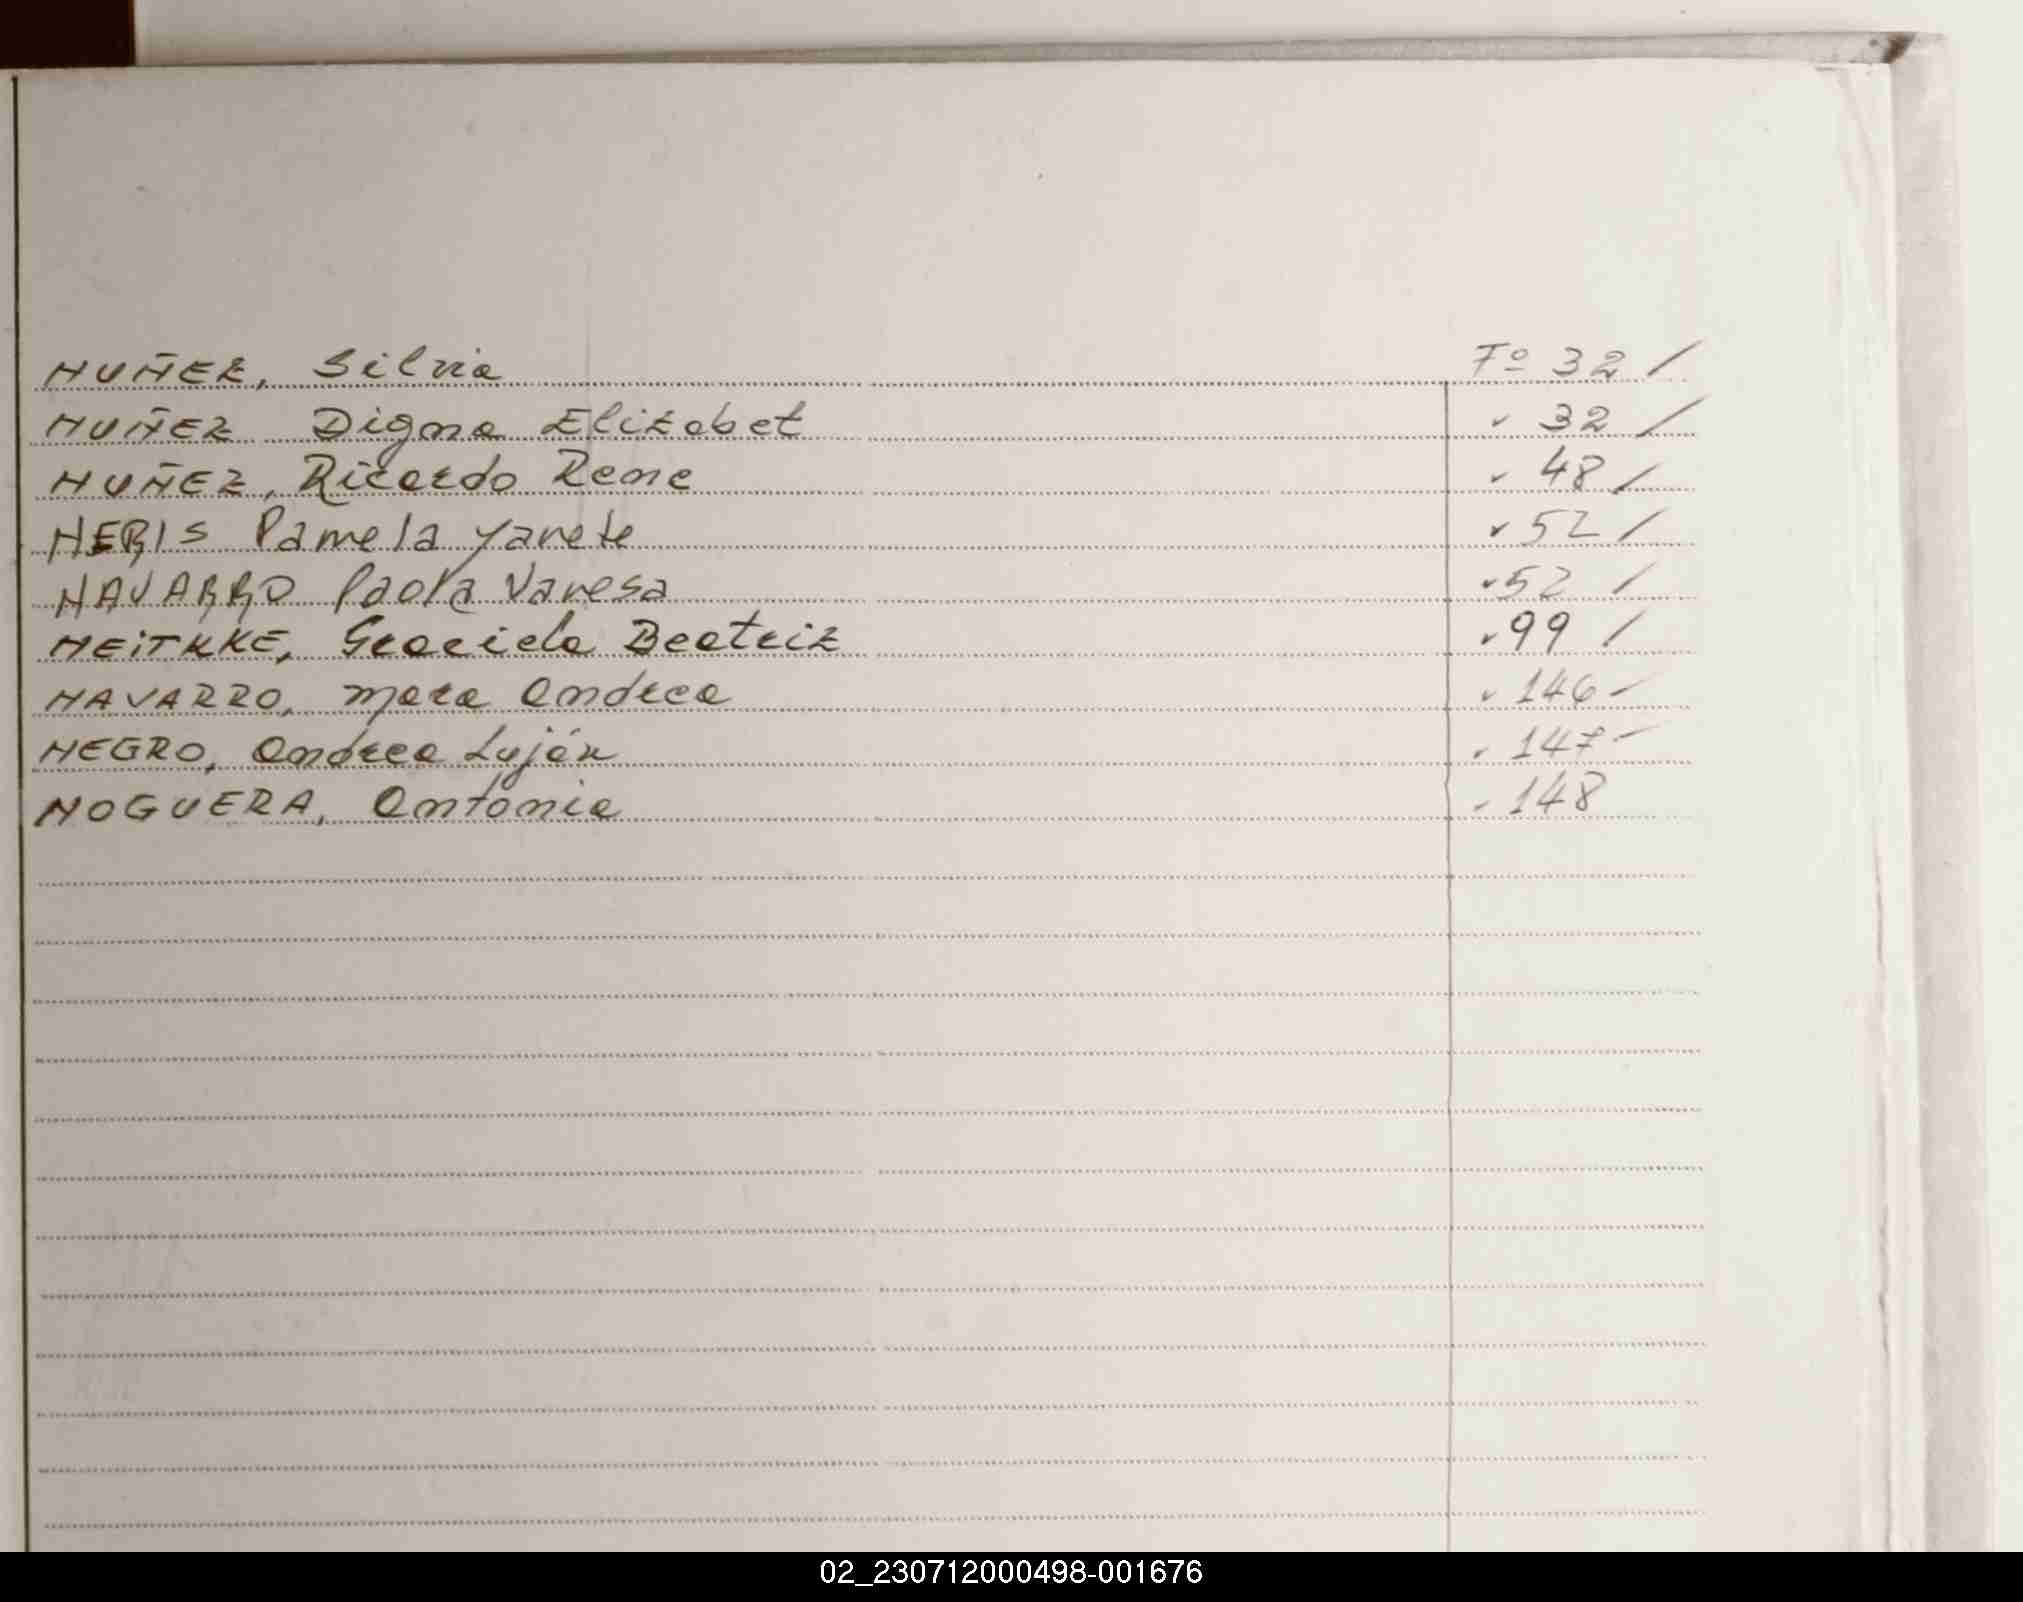 NUÑEZ, Silvia Fº 32 /
NUÑEZ Digna Elizabet " 32 /
NUÑEZ, Ricardo Rene " 48 /
NERIS Pamela Yanete " 52 /
NAVARRO Paola Vanesa " 52 /
NEITKKE, Graciela Beatriz " 99 /
NAVARRO, Mara Andrea " 146 -
NEGRO, Andrea Luján " 147 -
NOGUERA, Antonia " 148
02_230712000498-001676